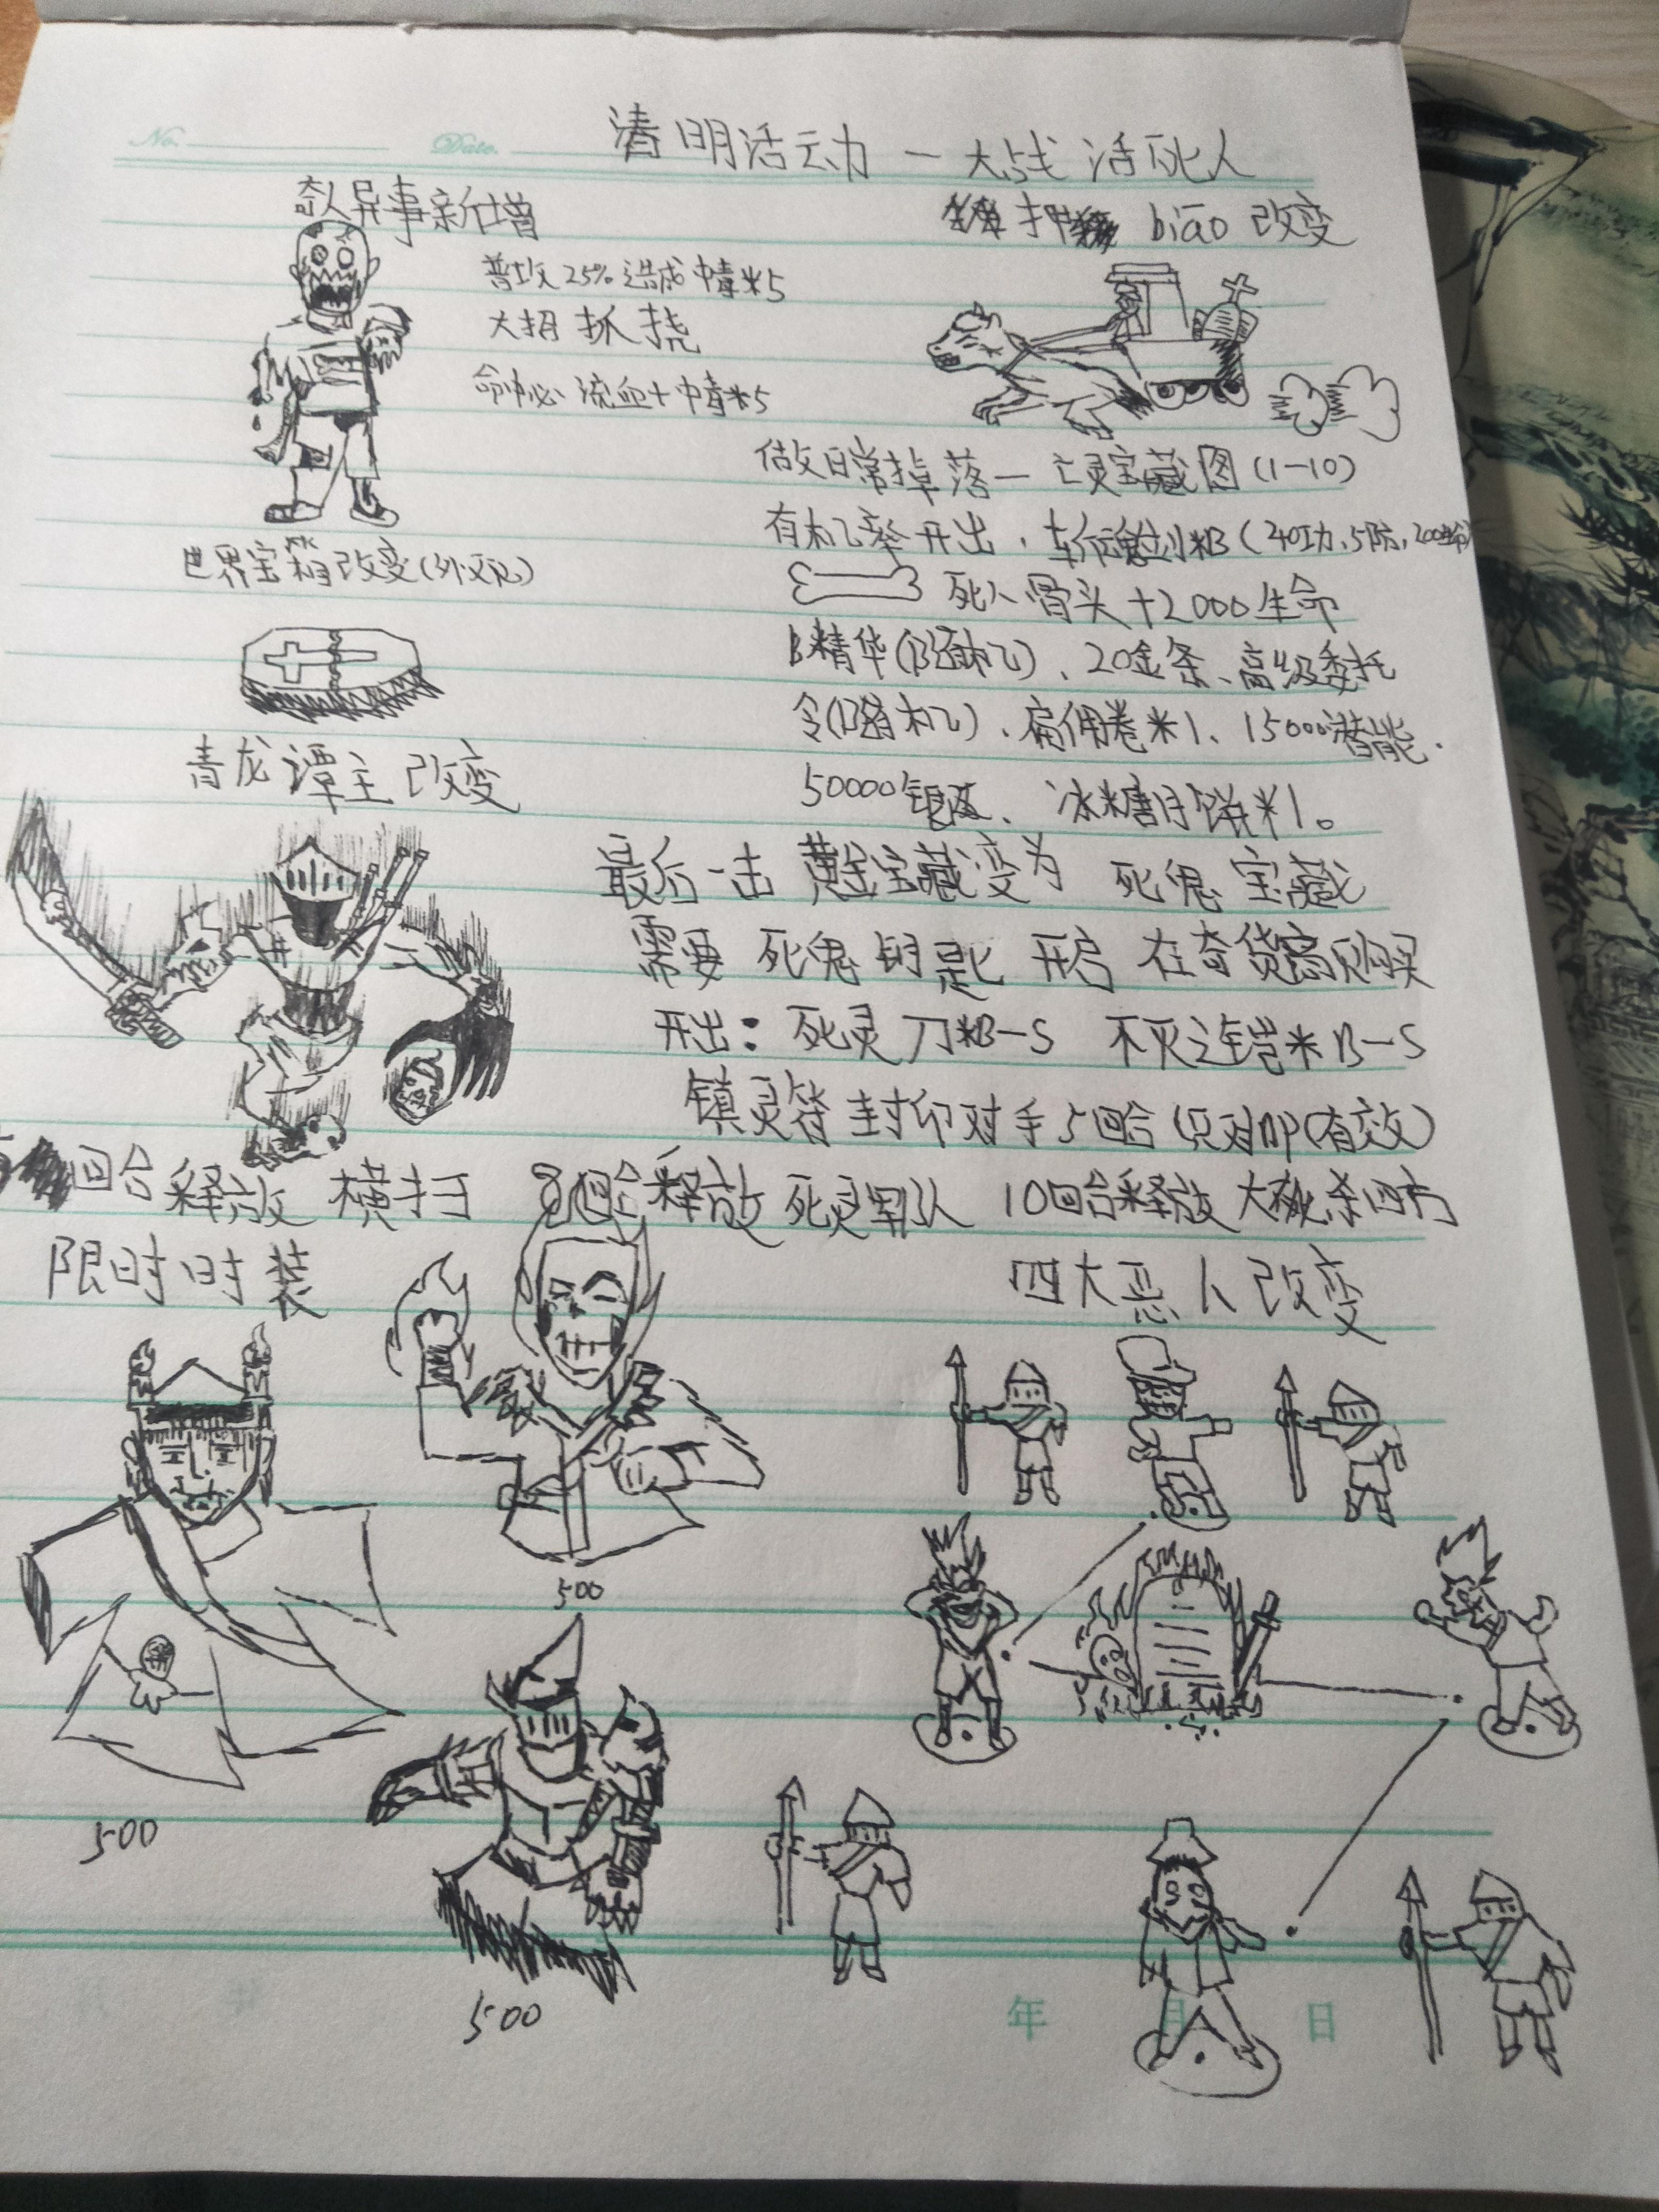 No. Date.
清明活动—大战活死人
奇人异事新增
普攻25%造成中毒*5
大招抓挠
命中必流血+中毒*5
押 biāo 改变
做日常掉落—亡灵宝藏图(1-10)
有机率开出、
死人骨头+2000生命
B精华(随机)、20金条、高级委托
令(随机)、雇佣卷*1、15000潜能、
50000银两、冰糖月饼*1。
世界宝箱改变(外观)
青龙谭主改变
最后一击 宝藏变为 死鬼宝藏
需要 死鬼钥匙 开启 在奇货商购买
开出:死灵刀*B-S 不灭连铠*B-S
镇灵符 封印对手5回合(只对 有效)
回合释放 横扫 回合释放 死灵军队 10回合释放 大杀四方
限时时装
四大恶人改变
500
500
500
年 月 日